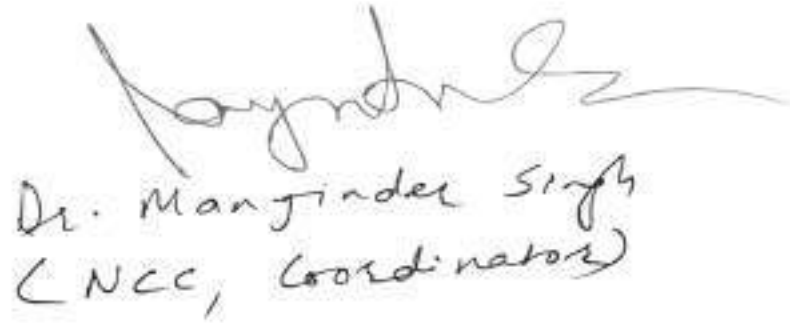 Dr. Manjinder Singh
(NCC, Coordinator)